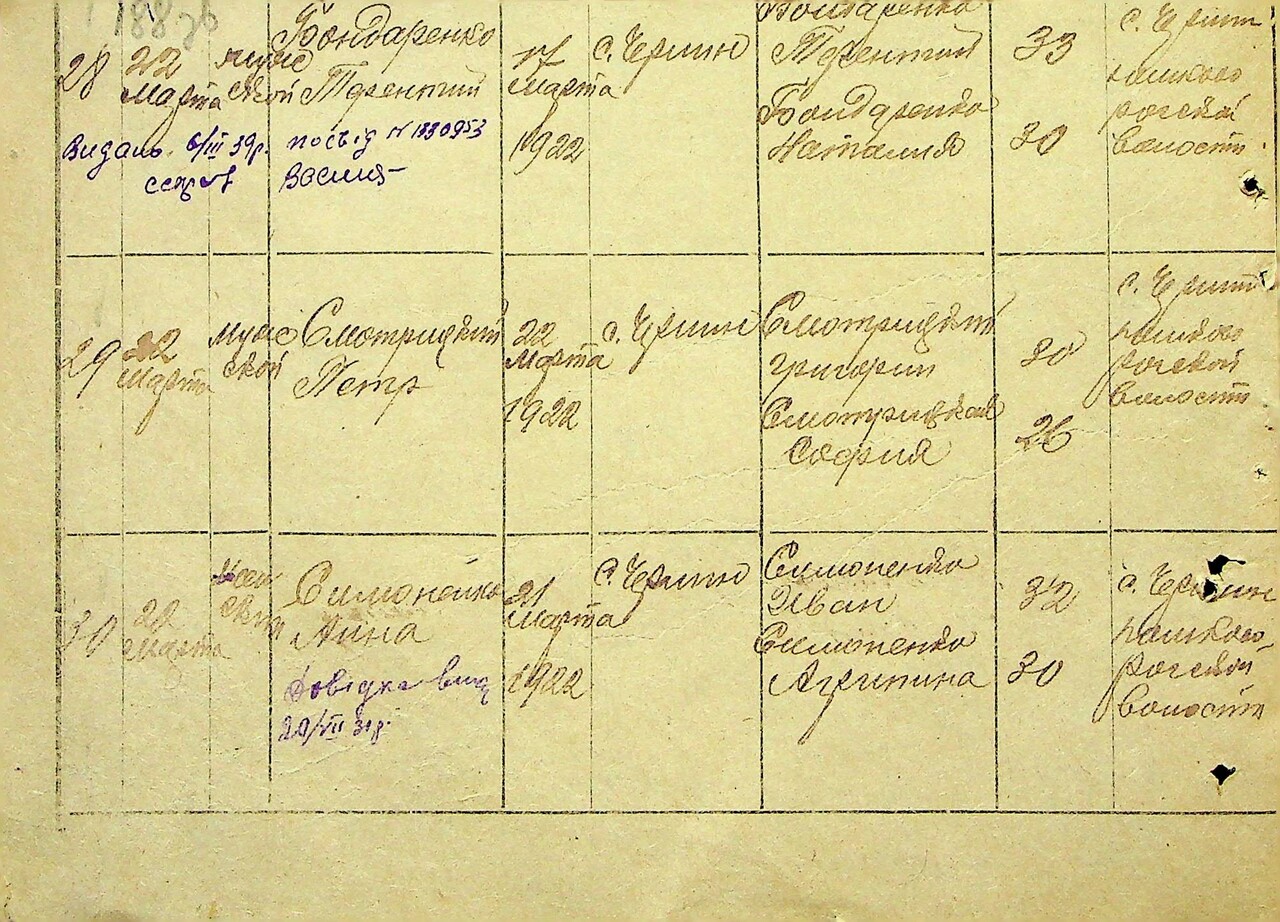 28
22
Марта
муж
ской
Бондаренко
Терентий
17
Марта
1922
с. Чермин
Бондаренко
Терентий
Бондаренко
Наталия
33
30
с. Чермин
рогской
волости
Видано 6/III 39р.
посвід № 1880953
29
22
Марта
мужс
ской
Смотрицкий
Петр
22
Марта
1922
с. Чермин
Смотрицкий
Григорий
Смотрицкая
София
30
26
с. Чермин
рогской
волости
30
22
Марта
жен
ский
Симоненко
Анна
Довідка вид
20/VII 31р.
21
Марта
1922
с. Чермин
Симоненко
Иван
Симоненко
Агрипина
32
30
с. Чермин
рогской
волости